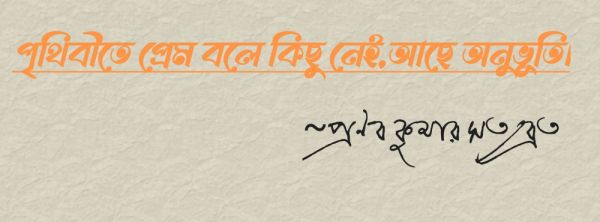 পৃথিবীতে প্রেম বলে কিছু নেই,আছে অনুভূতি।
~প্রণব কুমার সত্যব্রত